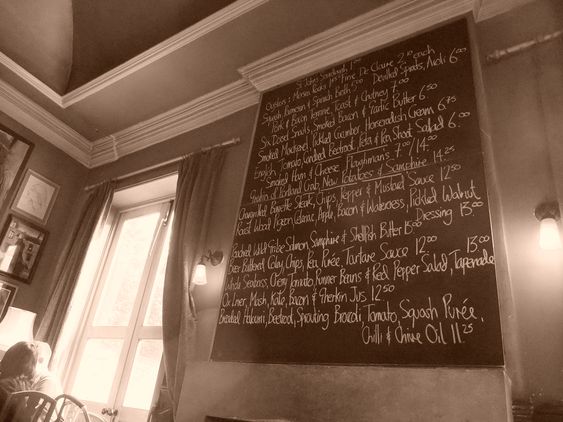 St Johns Sourdough 1.00
Oysters: Maldon Rocks 1.80 Fine De Claire 2.10 each
Squash, Parmesan & Spinach Broth 5.00 Devilled Sprats, Aioli 6.00
Pork & Bacon Terrine, Toast & Chutney 7.00
Six Dorset Snails, Smoked Bacon & Garlic Butter 6.50
Smoked Mackerel, Pickled Cucumber, Horseradish Cream 6.75
English Tomato, Candied Beetroot, Feta & Pea Shoot Salad 6.00
Smoked Ham & Cheese Ploughmans 7.00/14.00
Gratin of Portland Crab, New Potatoes & Samphire 14.25
Chargrilled Bavette Steak, Chips, Pepper & Mustard Sauce 12.50
Roast Wood Pigeon, Celeriac, Apple, Bacon & Watercress, Pickled Walnut
Dressing 13.00
Poached Wild Pike Salmon, Samphire & Shellfish Bitter 15.00
Beer Battered Coley, Chips, Pea Purée Tartare Sauce 12.00
Whole Seabass, Cherry Tomato, Runner Beans & Red Pepper Salad, Tapenade 13.00
Ox Liver, Mash, Kale, Bacon & Gherkin Jus 12.50
Breaded Haloumi, Beetroot, Sprouting Brocoli, Tomato, Squash Purée,
Chilli & Chive Oil 11.25